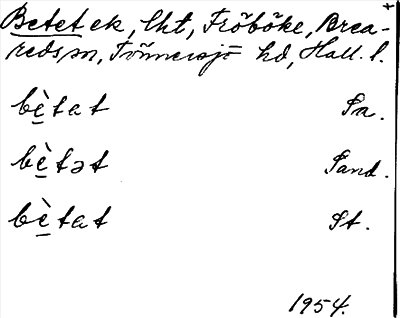 Betet ek, lht, Fröböke, Brea-
redssn, Tönnersjö hd, Hall. l.
bè̱tat Sa.
bè̱tət Sand.
bè̱tat St.
1954.